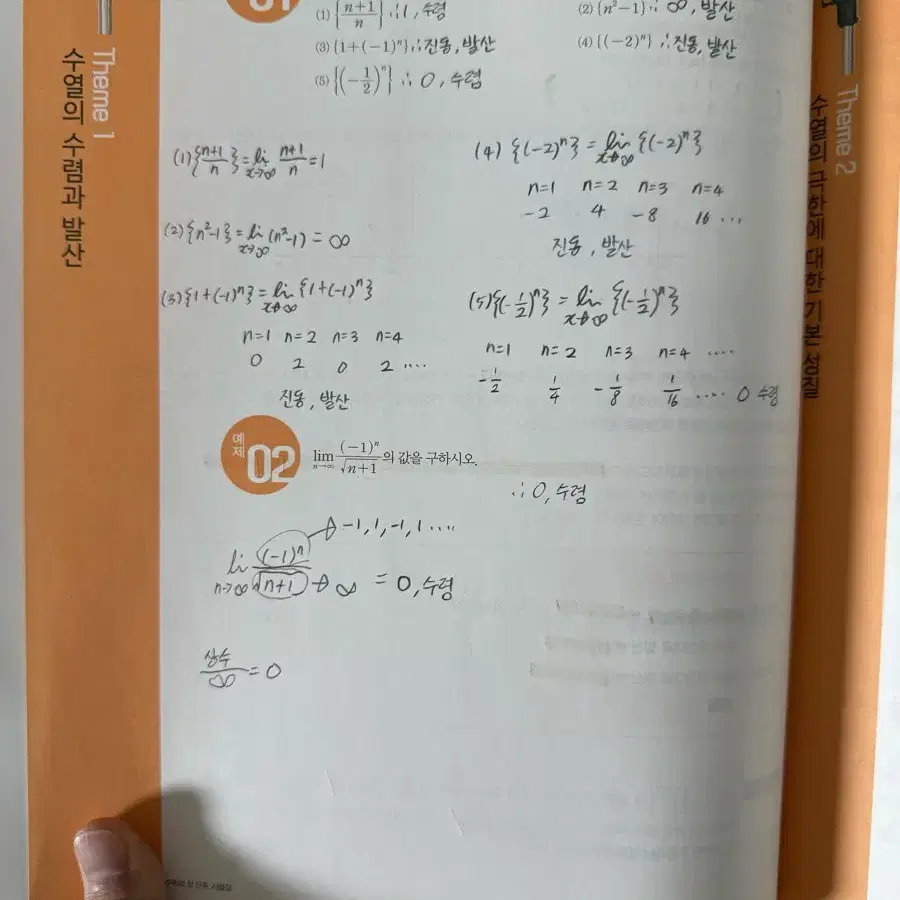 Theme 1
수열의 수렴과 발산
01
(1) {n+1/n} ∴ 1, 수렴
(2) {n²−1} ∴ ∞, 발산
(3) {1+(−1)ⁿ} ∴ 진동, 발산
(4) {(−2)ⁿ} ∴ 진동, 발산
(5) {(−1/2)ⁿ} ∴ 0, 수렴
(1) {n+1/n} = lim x→∞ n+1/n = 1
(2) {n²-1} = lim x→∞ (n²-1) = ∞
(3) {1+(-1)ⁿ} = lim x→∞ {1+(-1)ⁿ}
n=1 n=2 n=3 n=4
0 2 0 2 ....
진동, 발산
(4) {(-2)ⁿ} = lim x→∞ {(-2)ⁿ}
n=1 n=2 n=3 n=4
-2 4 -8 16 ...
진동, 발산
(5) {(-1/2)ⁿ} = lim x→∞ {(-1/2)ⁿ}
n=1 n=2 n=3 n=4 ....
-1/2 1/4 -1/8 1/16 .... 0 수렴
예제 02
lim n→∞ (−1)ⁿ/√n+1 의 값을 구하시오.
∴ 0, 수렴
→ -1, 1, -1, 1 ....
lim n→∞ (-1)ⁿ/√n+1 → ∞ = 0, 수렴
상수/∞ = 0
Theme 2
수열의 극한에 대한 기본 성질